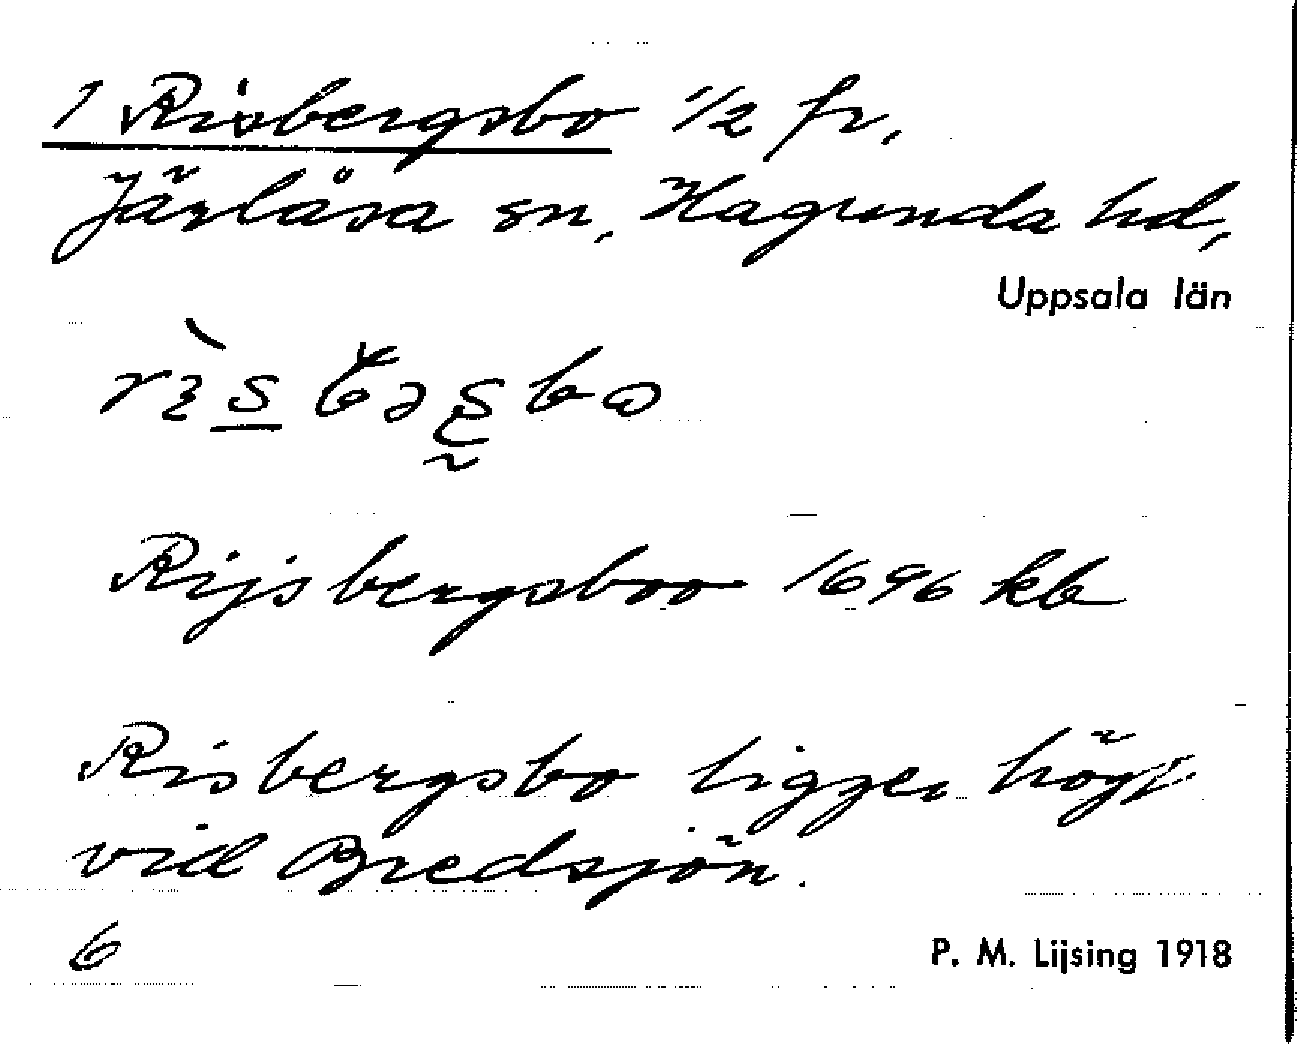 1 Risbergsbo 1/2 fr,
Järlåsa sn, Hagunda hd,
Uppsala län
Rijsbergsboo 1696 kb
Risbergsbo ligger högt
vid Bredsjön.
6
P. M. Lijsing 1918